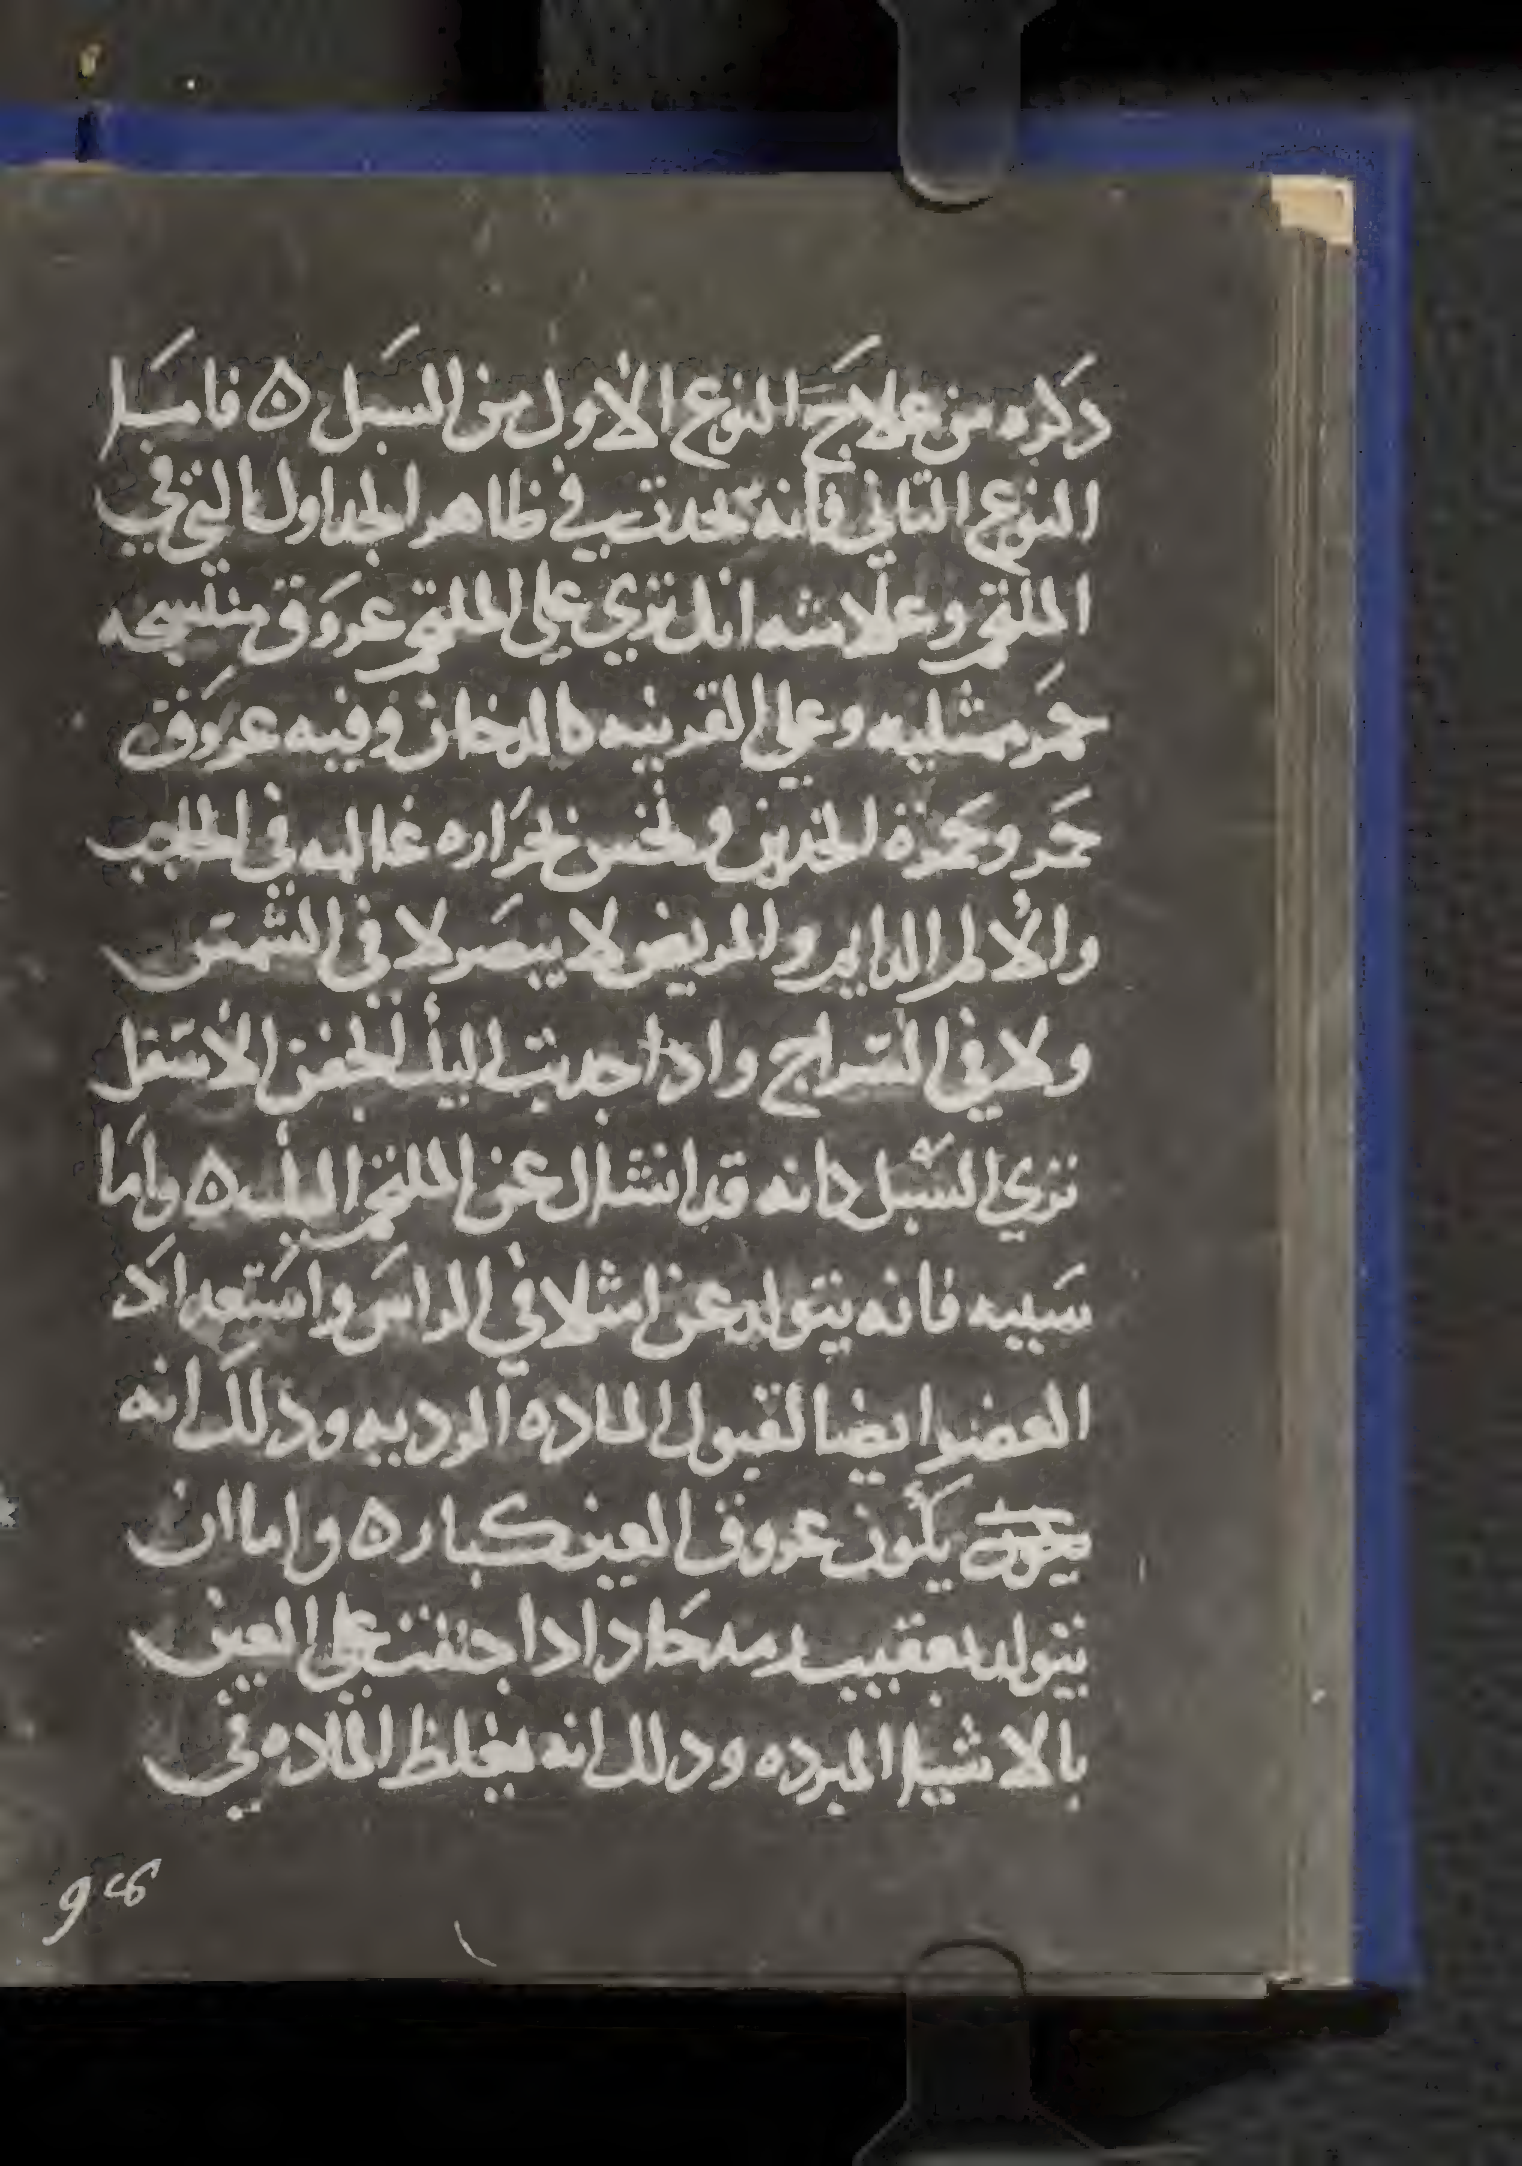 ذكره من علاج النوع الاول من السبل ٥ فاما سبل
النوع التاني فانه يحدت في ظاهر الجداول التي في
الملتحم وعلامته انك تري علي الملتحم عروق منتسجه
حمر ممتليه وعلي القرنيه كالدخان وفيه عروق
حمر وحمرة الخدين وتحس بحراره غالبه في الحاجب
والالم الدايم والمريض لا يبصر لا في الشمس
ولا في السراج واذا جدبت اليك الجفن الاسفل
تري السبل كانه قد انشال عن الملتحم اليك ٥ واما
سببه فانه يتولد عن امتلا في الراس واستعداد
العضو ايضا لقبول الماده الرديه وذلك انه
يكون عروق العين كبار ٥ واما ان
يتولد بعقيب رمد حاد اذا جنفت علي العين
بالاشيا المبرده وذلك انه يغلظ الماده في